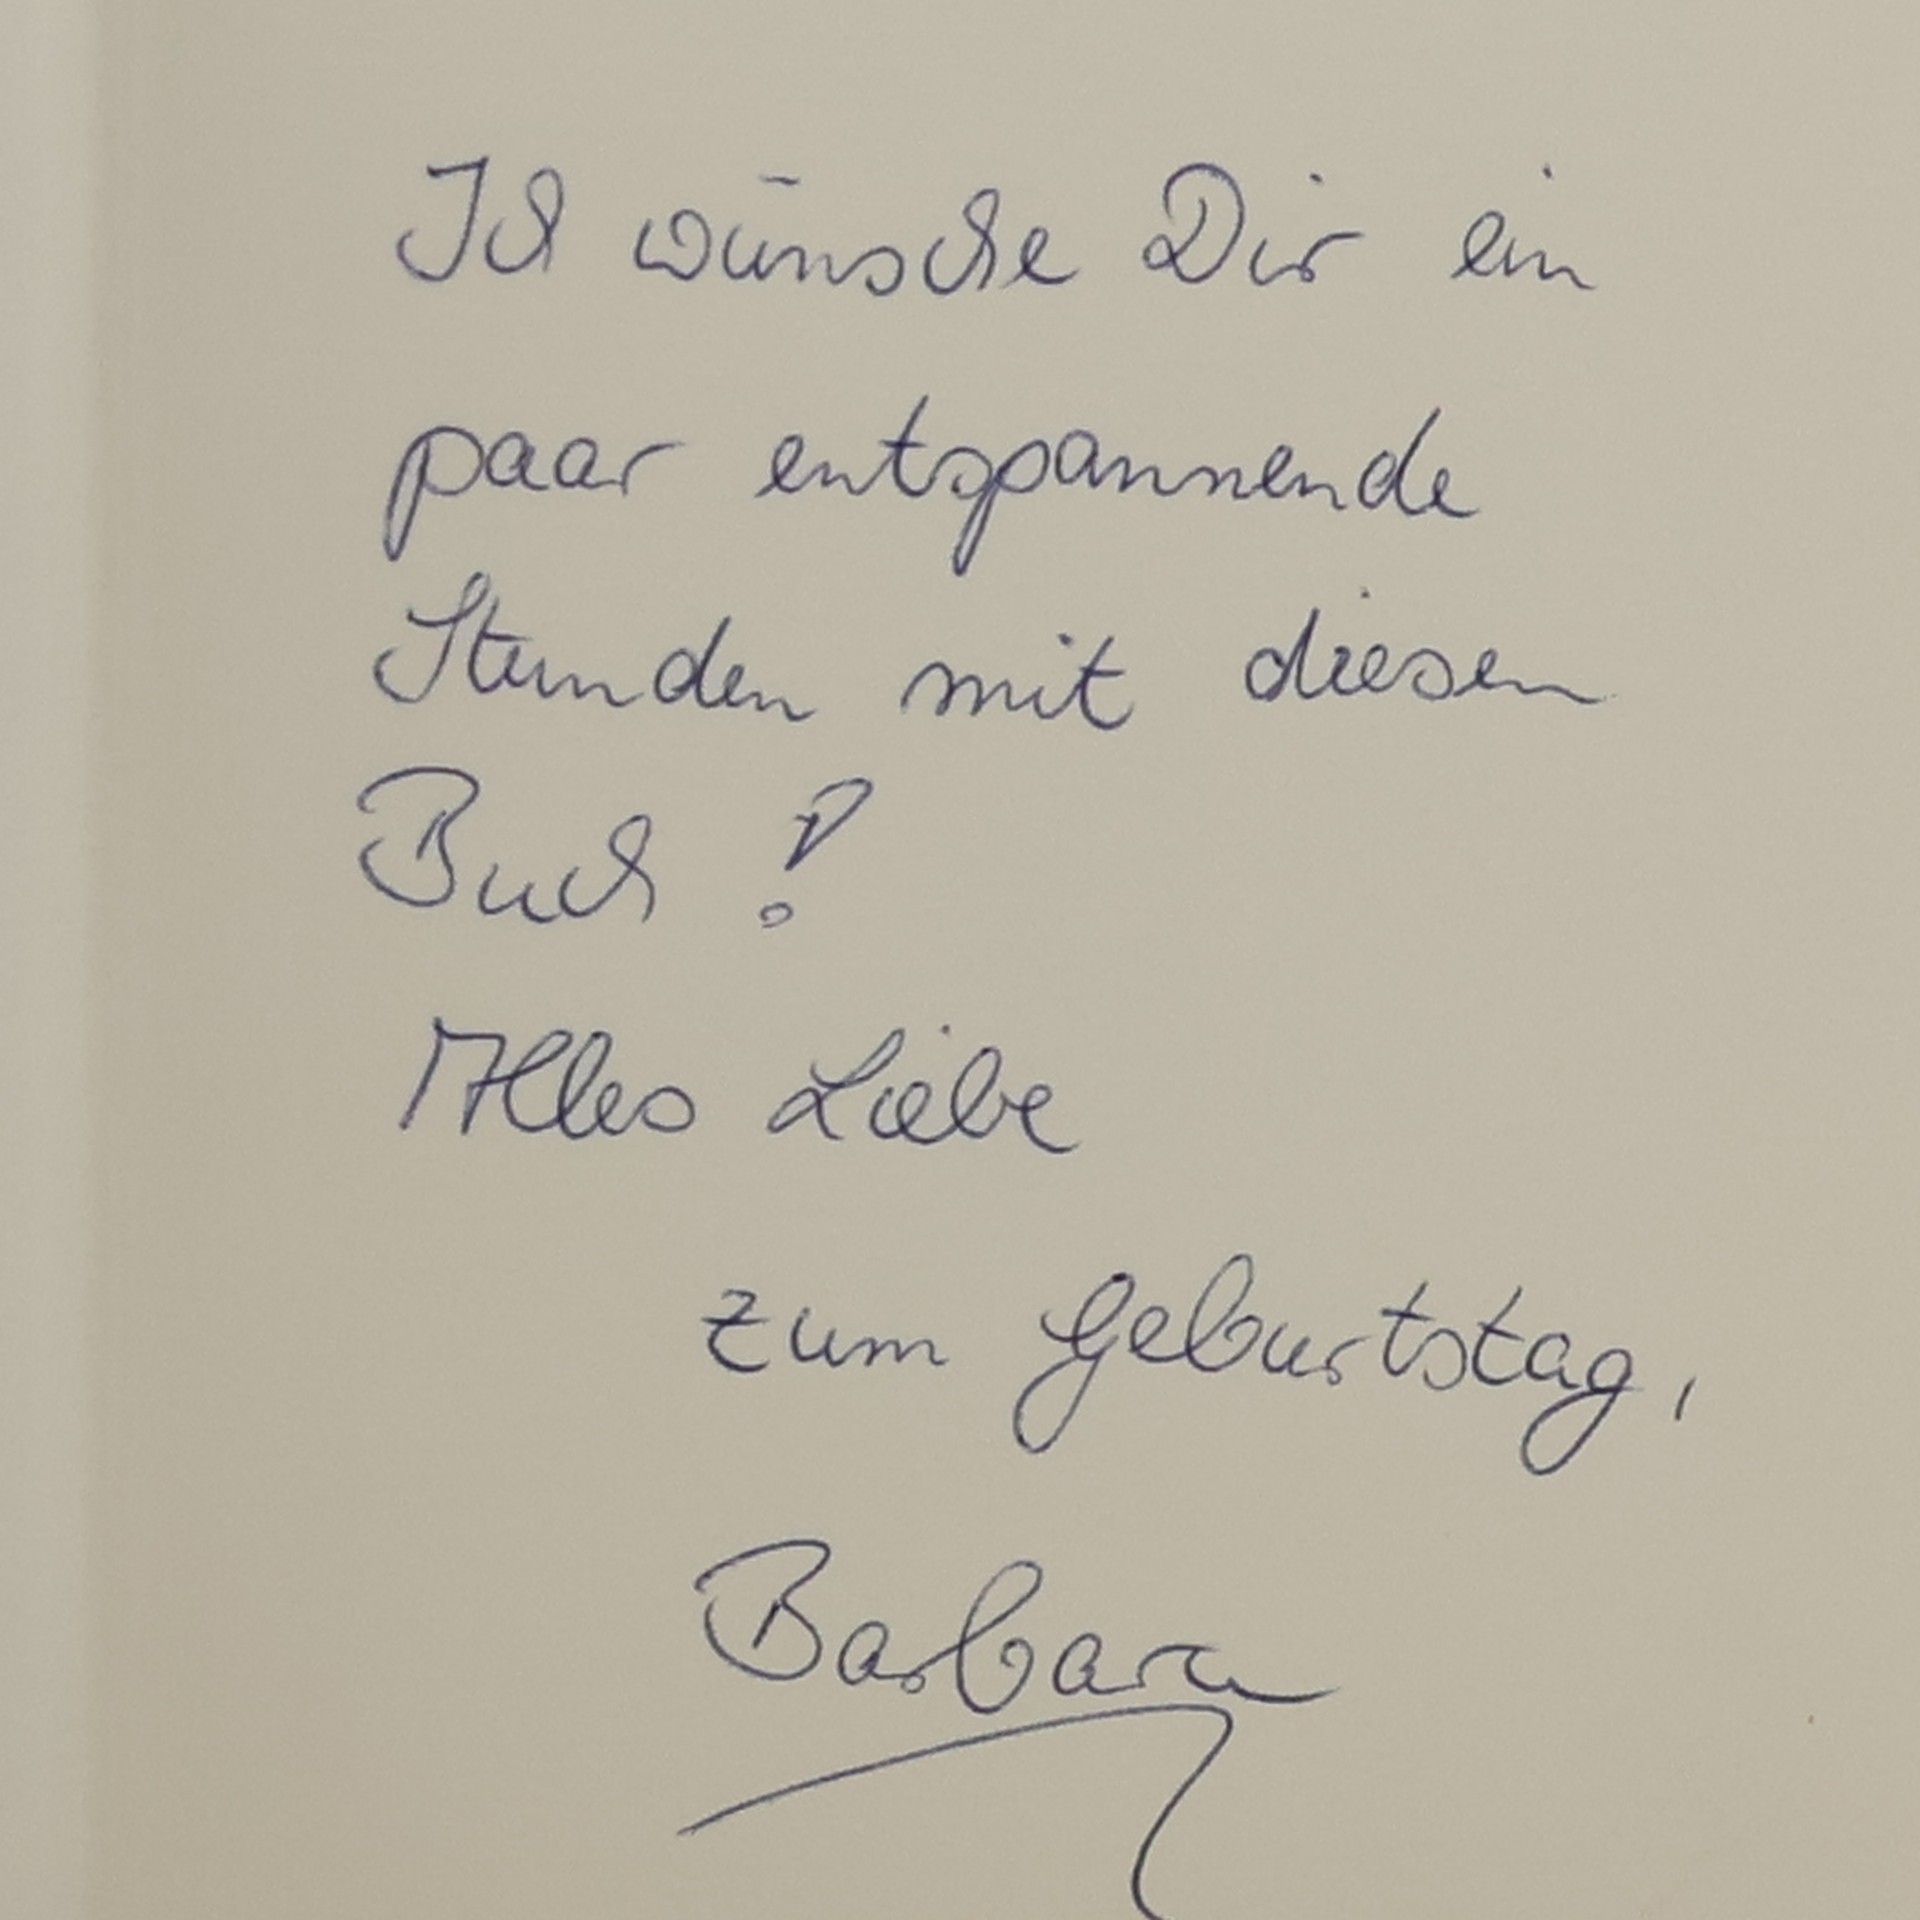 Ich wünsche Dir ein
paar entspannende
Stunden mit diesem
Buch!
Alles Liebe
zum Geburtstag,
Barbara